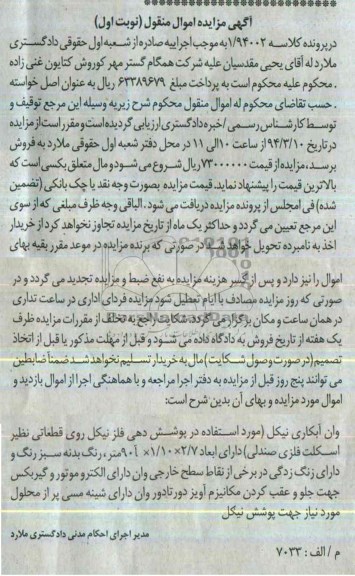 آگهی مزایده اموال منقول (نوبت اول)
درپرونده کلاسه ۱/۹۴۰۰۲ به موجب اجراییه صادره از شعبه اول حقوقی دادگستری
ملارد له آقای یحیی مقدسیان علیه شرکت همگام گستر مهر کوروش کتایون غنی زاده
. محکوم علیه محکوم است به پرداخت مبلغ ۶۳۳۸۹۶۷۹ ریال به عنوان اصل خواسته
. حسب تقاضای محکوم له اموال منقول محکوم شرح زیر به وسیله این مرجع توقیف و
توسط کارشناس رسمی /خبره دادگستری ارزیابی گردیده است و مقرر است از مزایده
در تاریخ ۹۴/۳/۱۰ از ساعت ۱۰ الی ۱۱ در محل دفتر شعبه اول حقوقی ملارد به فروش
برسد، مزایده از قیمت ۷۳۰۰۰۰۰۰ ریال شروع می شود و مال متعلق بکسی است که
بالاترین قیمت را پیشنهاد نماید. قیمت مزایده بصورت وجه نقد یا چک بانکی (تضمین
شده) فی امجلس از برنده مزایده دریافت می شود . الباقی وجه ظرف مبلغی که از سوی
این مرجع تعیین می گردد و حداکثر یک ماه از تاریخ مزایده تجاوز نخواهد کرد از خریدار
اخذ به نامبرده تحویل خواهد شد و در صورتی که برنده مزایده در موعد مقرر بقیه بهای
اموال را نیز دارد و پس از کسر هزینه مزایده به نفع ضبط و مزایده تجدید می گردد و در
صورتی که روز مزایده مصادف با ایام تعطیل شود مزایده فردای اداری در ساعت تداری
در همان ساعت و مکان برگزار می گردد. شکایت راجع به تخلف از مقررات مزایده ظرف
یک هفته از تاریخ فروش به دادگاه داده می شود و قبل از مهلت مذکور یا قبل از اتخاذ
تصمیم (در صورت وصول شکایت) مال به خریدار تسلیم نخواهد شد ضمناً ضابطین
می توانند پنج روز قبل از مزایده به دفتر اجرا مراجعه و با هماهنگی اجرا از اموال بازدید و
اموال مورد مزایده و بهای آن بدین شرح است:
وان آبکاری نیکل (مورد استفاده در پوشش دهی فلز نیکل روی قطعاتی نظیر
اسکلت فلزی صندلی) دارای ابعاد ۲/۷×۱/۱۰× ۹۰متر، رنگ بدنه سبز رنگ و
دارای زنگ زدگی در برخی از نقاط سطح خارجی وان دارای الکترو موتور و گیربکس
جهت جلو و عقب کردن مکانیزم آویز دور تا دور وان دارای شینه مسی پر از محلول
مورد نیاز جهت پوشش نیکل
مدیر اجرای احکام مدنی دادگستری ملارد
م / الف : ۷۰۳۳